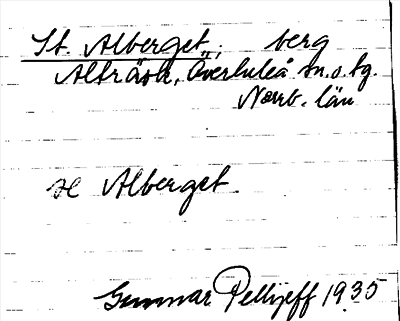 St. Alberget, berg
Alträsk, Överluleå sn. o. tg.
Norrb. län
se Alberget
Gunnar Pellijeff 1935